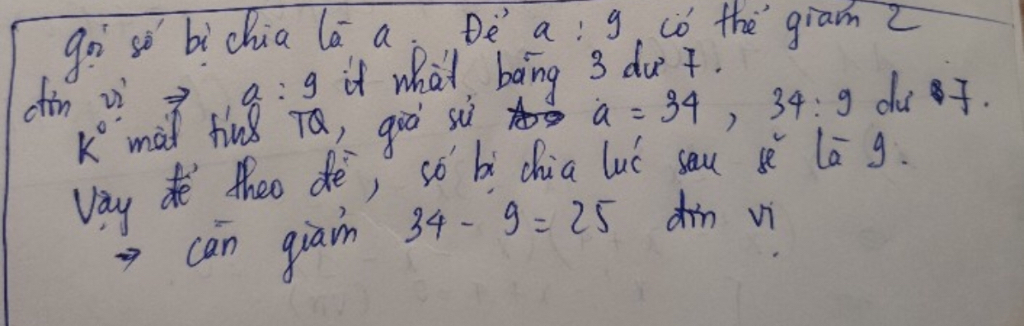 Gọi số bị chia là a. Để a : 9 có thể giảm 2
đơn vị => a : 9 ít nhất bằng 3 dư 7.
K° mất tính TQ, giả sử a = 34, 34 : 9 dư 7.
Vậy để theo đề, số bị chia lúc sau sẽ là 9.
=> cần giảm 34 - 9 = 25 đơn vị